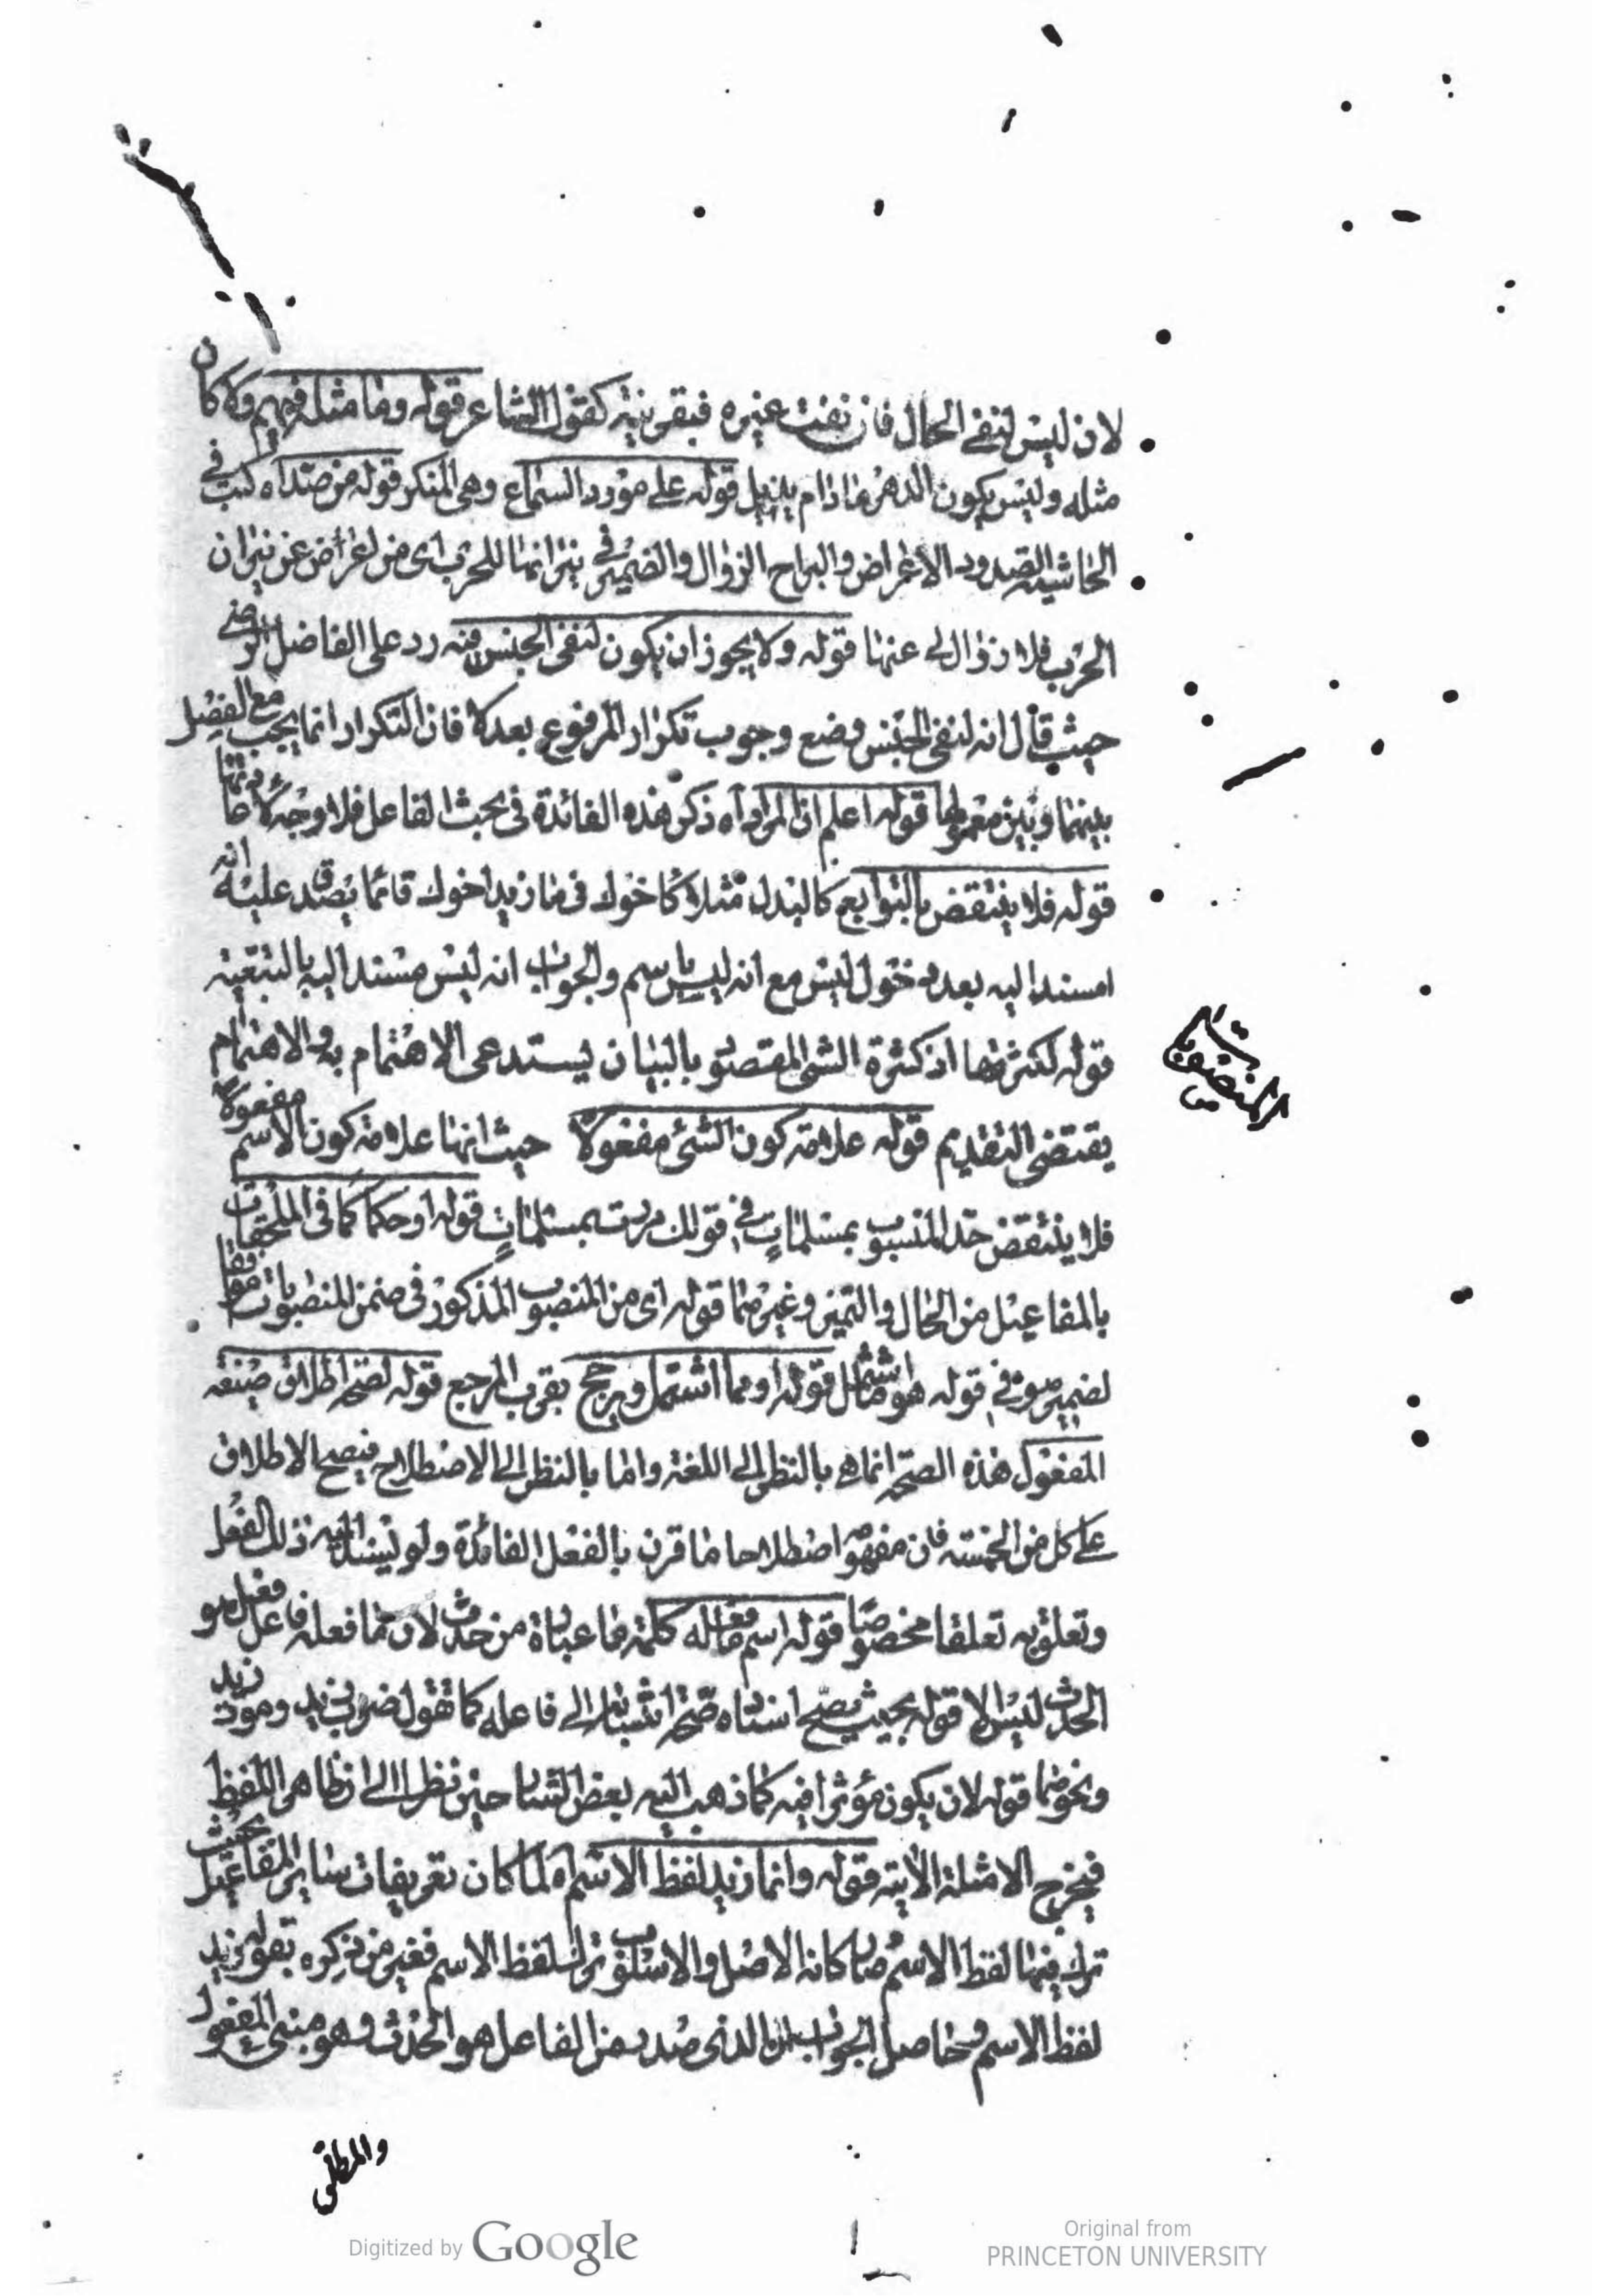 لان ليس لنفي الحال فان نفت غيره فبقرينة كقول الشاعر قوله وما مثله فيهم ولا كان
مثله وليس يكون الدهر ما دام يذبل قوله على مورد السماع وهى المنكر قوله من صد اه كتب في
الحاشية الصدود الاعراض والبراح الزوال والضمير في نيرانها للحرب اى من اعرض عن نيران
الحرب فلا زوال لى عنها قوله ولا يجوز ان يكون لنفى الجنس فيه رد على الفاضل الرضي
حيث قال انه لنفى الجنس ومنع وجوب تكرار المرفوع بعد لا فان التكرار انما يجب مع الفصل
بينها وبين معمولها قوله اعلم ان المراد اه ذكر هذه الفائدة فى بحث الفاعل فلا وجه لا
قوله فلا ينتقض بالتوابع كالبدل مثلا كاخوك فى ما زيد اخوك قائما يصدق عليه انه
مسند اليه بعد دخول ليس مع انه ليس باسم والجواب انه ليس مسندا اليه بالتبعية
قوله لكثرتها اذ كثرة الشئ المقصود بالبيان يستدعى الاهتمام به والاهتمام
المنصوبات
يقتضى التقديم قوله علامة كون الشئ مفعولا حيث انها علامة كون الاسم مفعولا
فلا ينتقض حد المنصوب بمسلمات في قولك مررت بمسلمات قوله او حكما كما فى الملحقات
بالمفاعيل من الحال والتميز وغيرهما قوله اى من المنصوب المذكور فى ضمن المنصوبات
لضمير هو في قوله هو ما اشتمل قوله او مما اشتمل ويرجح بقرب المرجع قوله لصحة اطلاق صيغة
المفعول هذه الصحة انما هى بالنظر الى اللغة واما بالنظر الى الاصطلاح فيصح الاطلاق
على كل من الخمسة فان مفهومه اصطلاحا ما قرن بالفعل لفائدة ولو ليسند اليه ذلك الفعل
وتعلق به تعلقا مخصوصا قوله اسم ما فعله كلمة ما عبارة من حدث لان ما فعله فاعل فعل هو
الحدث ليس الا قوله بحيث يصح اسناده صحة انتسابه الى فاعله كما تقول ضرب زيد وموت زيد
ونحوهما قوله لان يكون مؤثرا فيه كما ذهب اليه بعض الشارحين نظرا الى ظاهر اللفظ
فيخرج الامثلة الاتية قوله وانما زيد لفظ الاسم اه لما كان تعريفات سائر المفاعيل بحيث
ترك فيها لفظ الاسم صار كانه الاصل والاسلوب ترك لفظ الاسم فعبر من ذكره بقوله زيد
لفظ الاسم وحاصل الجواب ان الذى صدر من الفاعل هو الحدث وهو مبنى المفعول
والمطلق
Digitized by Google
Original from
PRINCETON UNIVERSITY